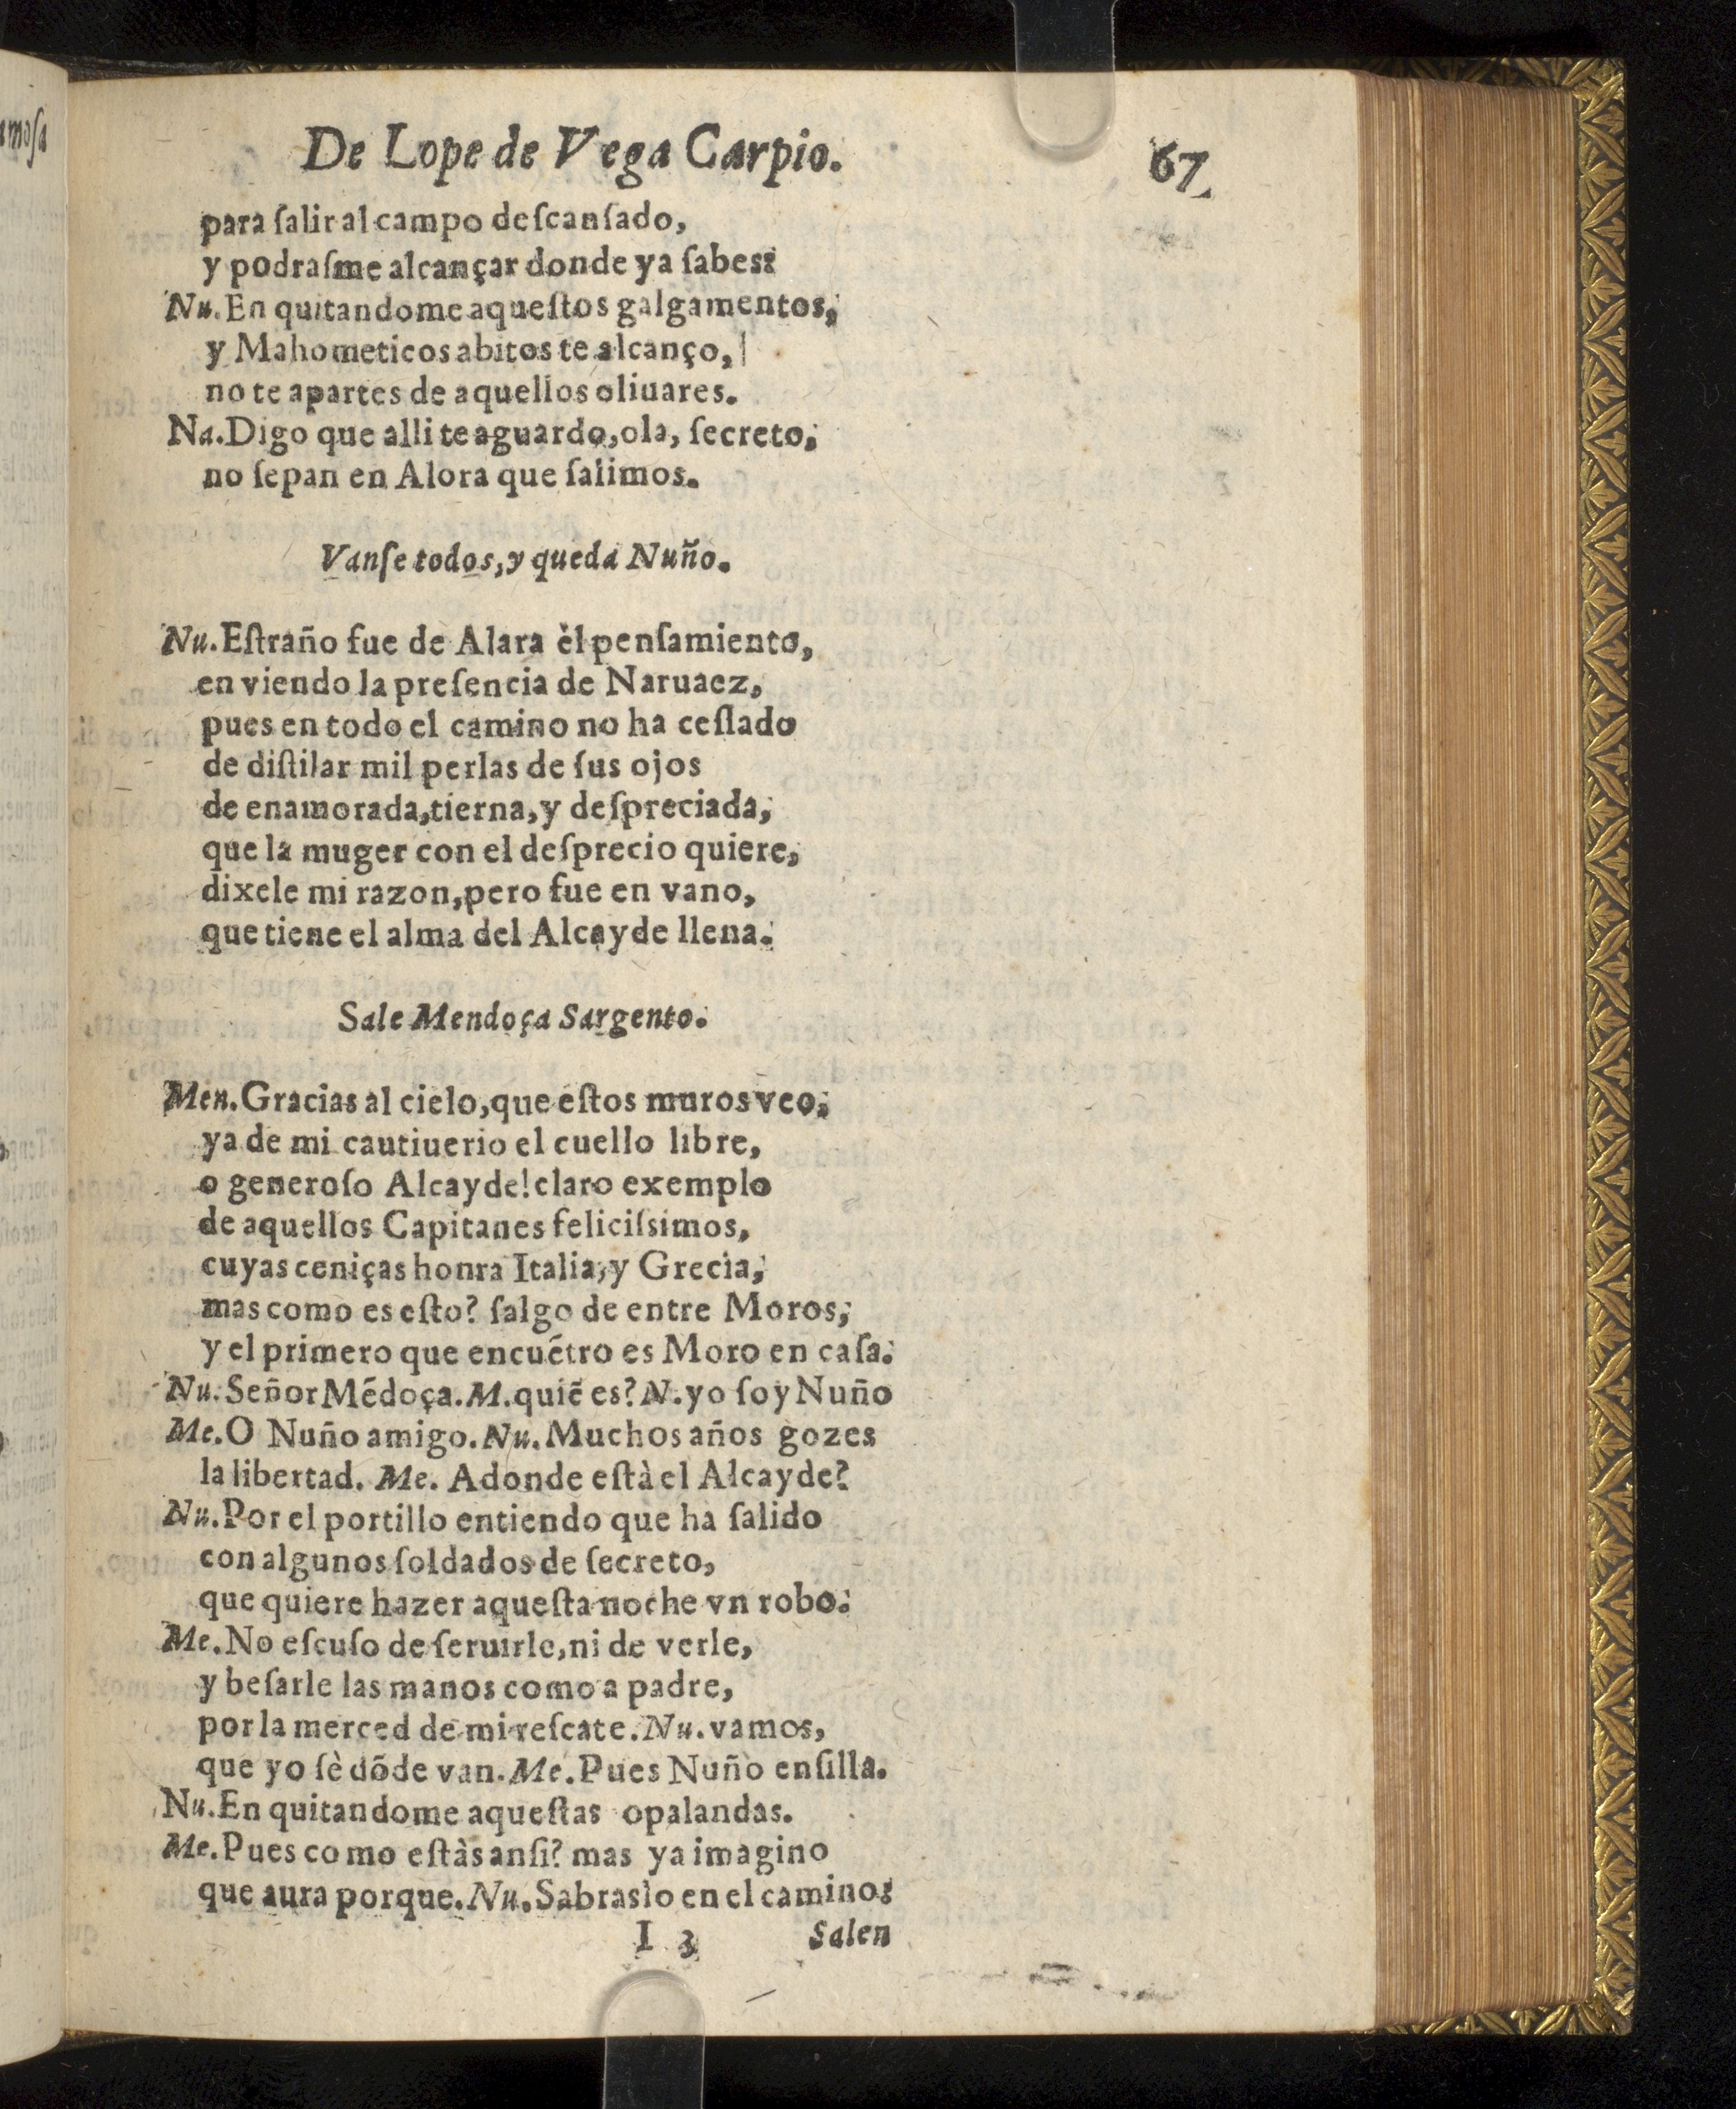 De Lope de Vega Carpio. 67.
para ſalir al campo deſcanſado,
y podraſme alcançar donde ya ſabes:
Nu. En quitandome aqueſtos galgamentos,
y Mahometicos abitos te alcanço,
no te apartes de aquellos oliuares.
Na. Digo que alli te aguardo, ola, ſecreto,
no ſepan en Alora que ſalimos.
Vanſe todos, y queda Nuño.
Nu. Eſtraño fue de Alara èl penſamiento,
en viendo la preſencia de Naruaez,
pues en todo el camino no ha ceſſado
de diſtilar mil perlas de ſus ojos
de enamorada, tierna, y deſpreciada,
que la muger con el deſprecio quiere,
dixele mi razon, pero fue en vano,
que tiene el alma del Alcayde llena.
Sale Mendoça Sargento.
Men. Gracias al cielo, que eſtos muros veo,
ya de mi cautiuerio el cuello libre,
o generoſo Alcayde! claro exemplo
de aquellos Capitanes feliciſsimos,
cuyas ceniças honra Italia, y Grecia,
mas como es eſto? ſalgo de entre Moros,
y el primero que encuẽtro es Moro en caſa.
Nu. Señor Mẽdoça. M. quiẽ es? N. yo ſoy Nuño
Me. O Nuño amigo. Nu. Muchos años gozes
la libertad. Me. Adonde eſtà el Alcayde?
Nu. Por el portillo entiendo que ha ſalido
con algunos ſoldados de ſecreto,
que quiere hazer aqueſta noche vn robo.
Me. No eſcuſo de ſeruirle, ni de verle,
y beſarle las manos como a padre,
por la merced de mi reſcate. Nu. vamos,
que yo ſè dõde van. Me. Pues Nuño enſilla.
Nu. En quitandome aqueſtas opalandas.
Me. Pues como eſtàs anſi? mas ya imagino
que aura porque. Nu. Sabraslo en el camino:
I 3 Salen